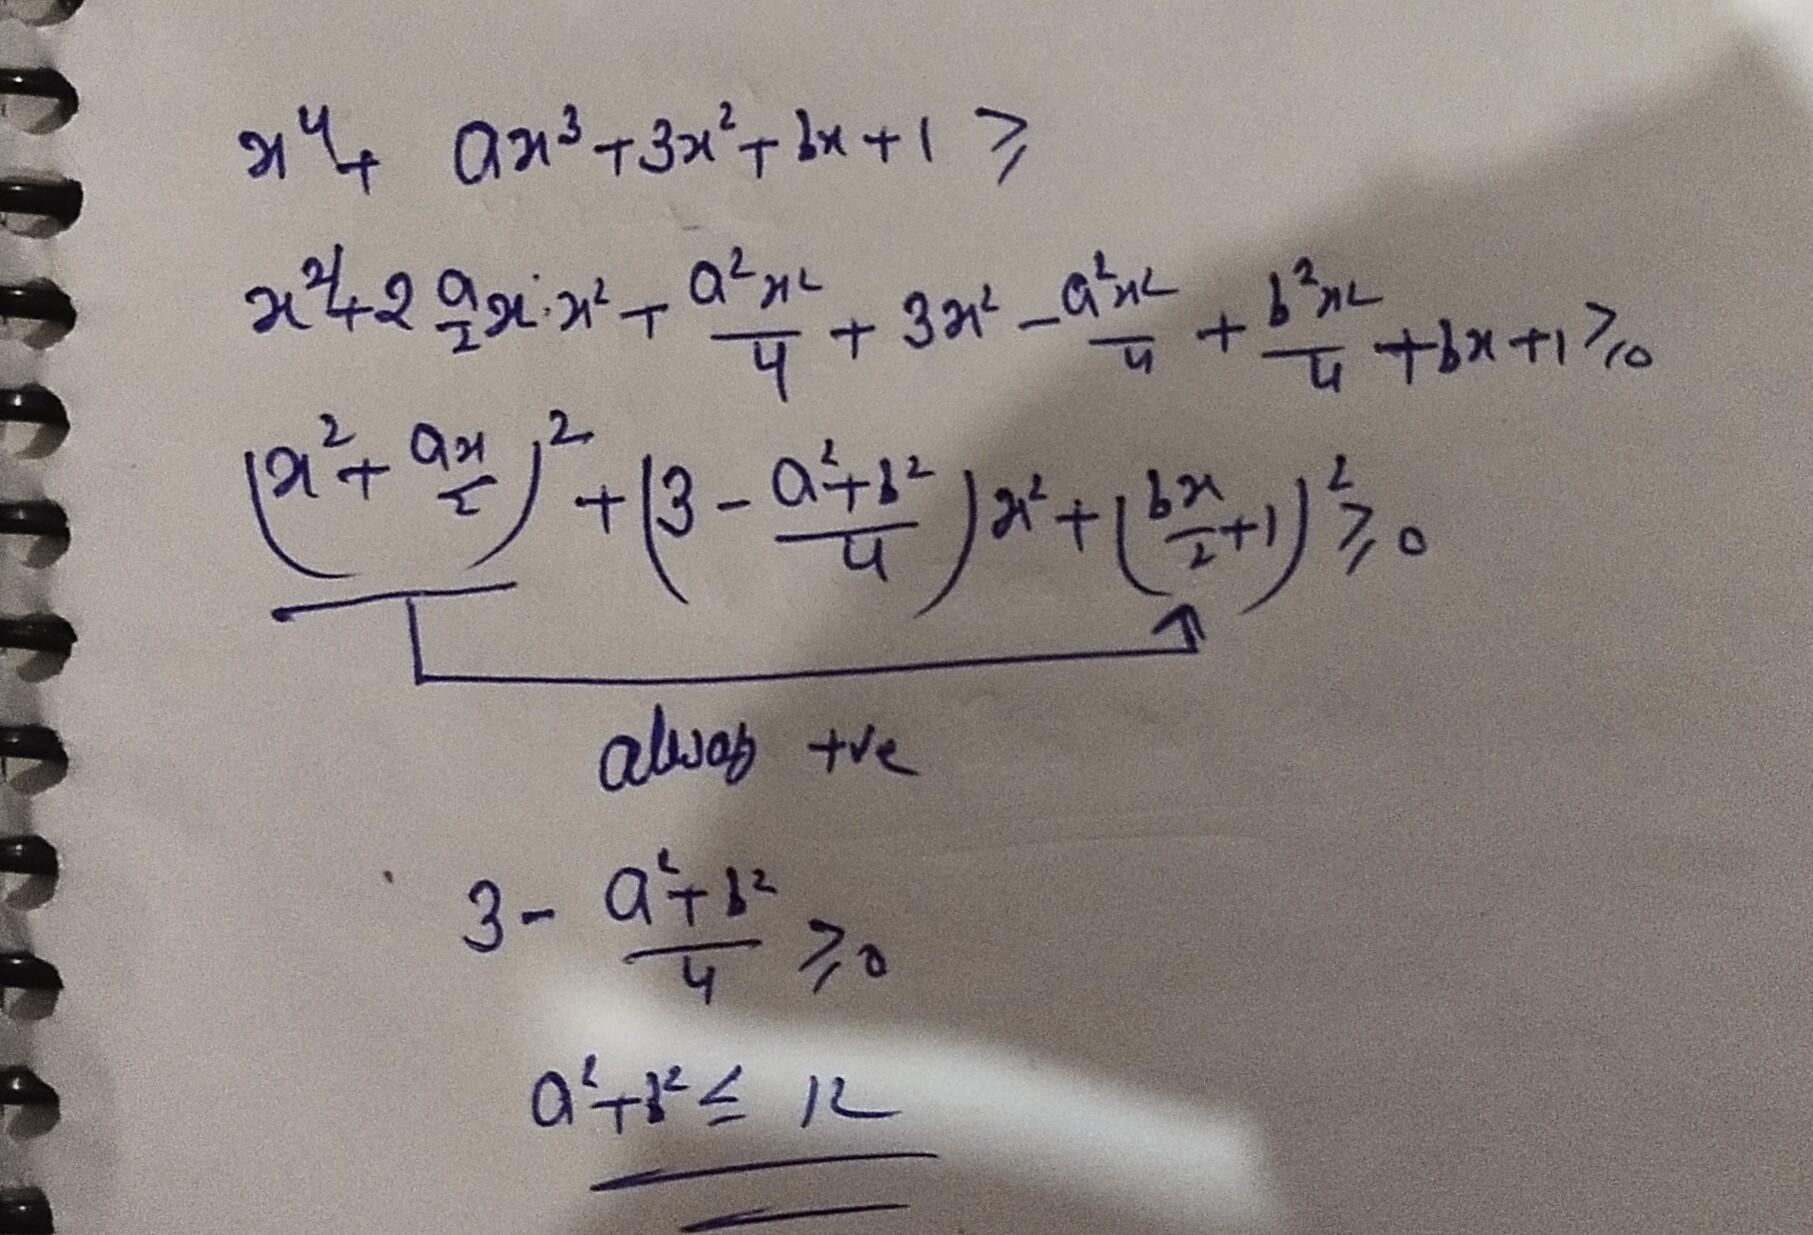 x⁴ + ax³ + 3x² + bx + 1 ≥
x⁴ + 2 a/2 x · x² + a²x²/4 + 3x² - a²x²/4 + b²x²/4 + bx + 1 ≥ 0
(x² + ax/2)² + (3 - a² + b²/4) x² + (bx/2 + 1)² ≥ 0
always +ve
3 - a² + b²/4 ≥ 0
a² + b² ≤ 12